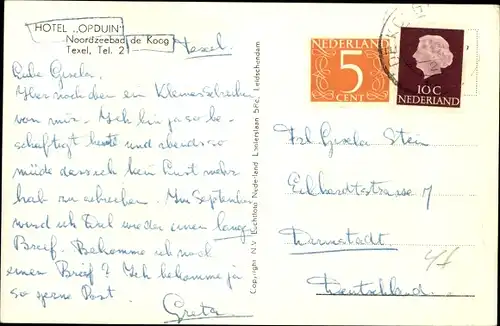 HOTEL „OPDUIN"
Noordzeebad de Koog
Texel, Tel. 2
Texel.
Liebe Gisela.
Hier noch eben ein Kleines Schreiben
von mir. Ich bin ja so be-
schäftigt heute und abends so
müde dass ich kein Lust mehr
hab zu schreiben. Im September
wird ich Dir wieder einen langen
Brief. Bekomme ich noch
einen Brief? Ich bekomme ja
so gerne Post.
Greta
Copyright N.V. Echtfoto Nederland Lanierslaan 5 Pr., Leidschendam
NEDERLAND
5
CENT
10 C
NEDERLAND
DE KOOG
Frl. Gisela Stein
Eckhardtstrasse 7
Darmstadt
Deutschland.